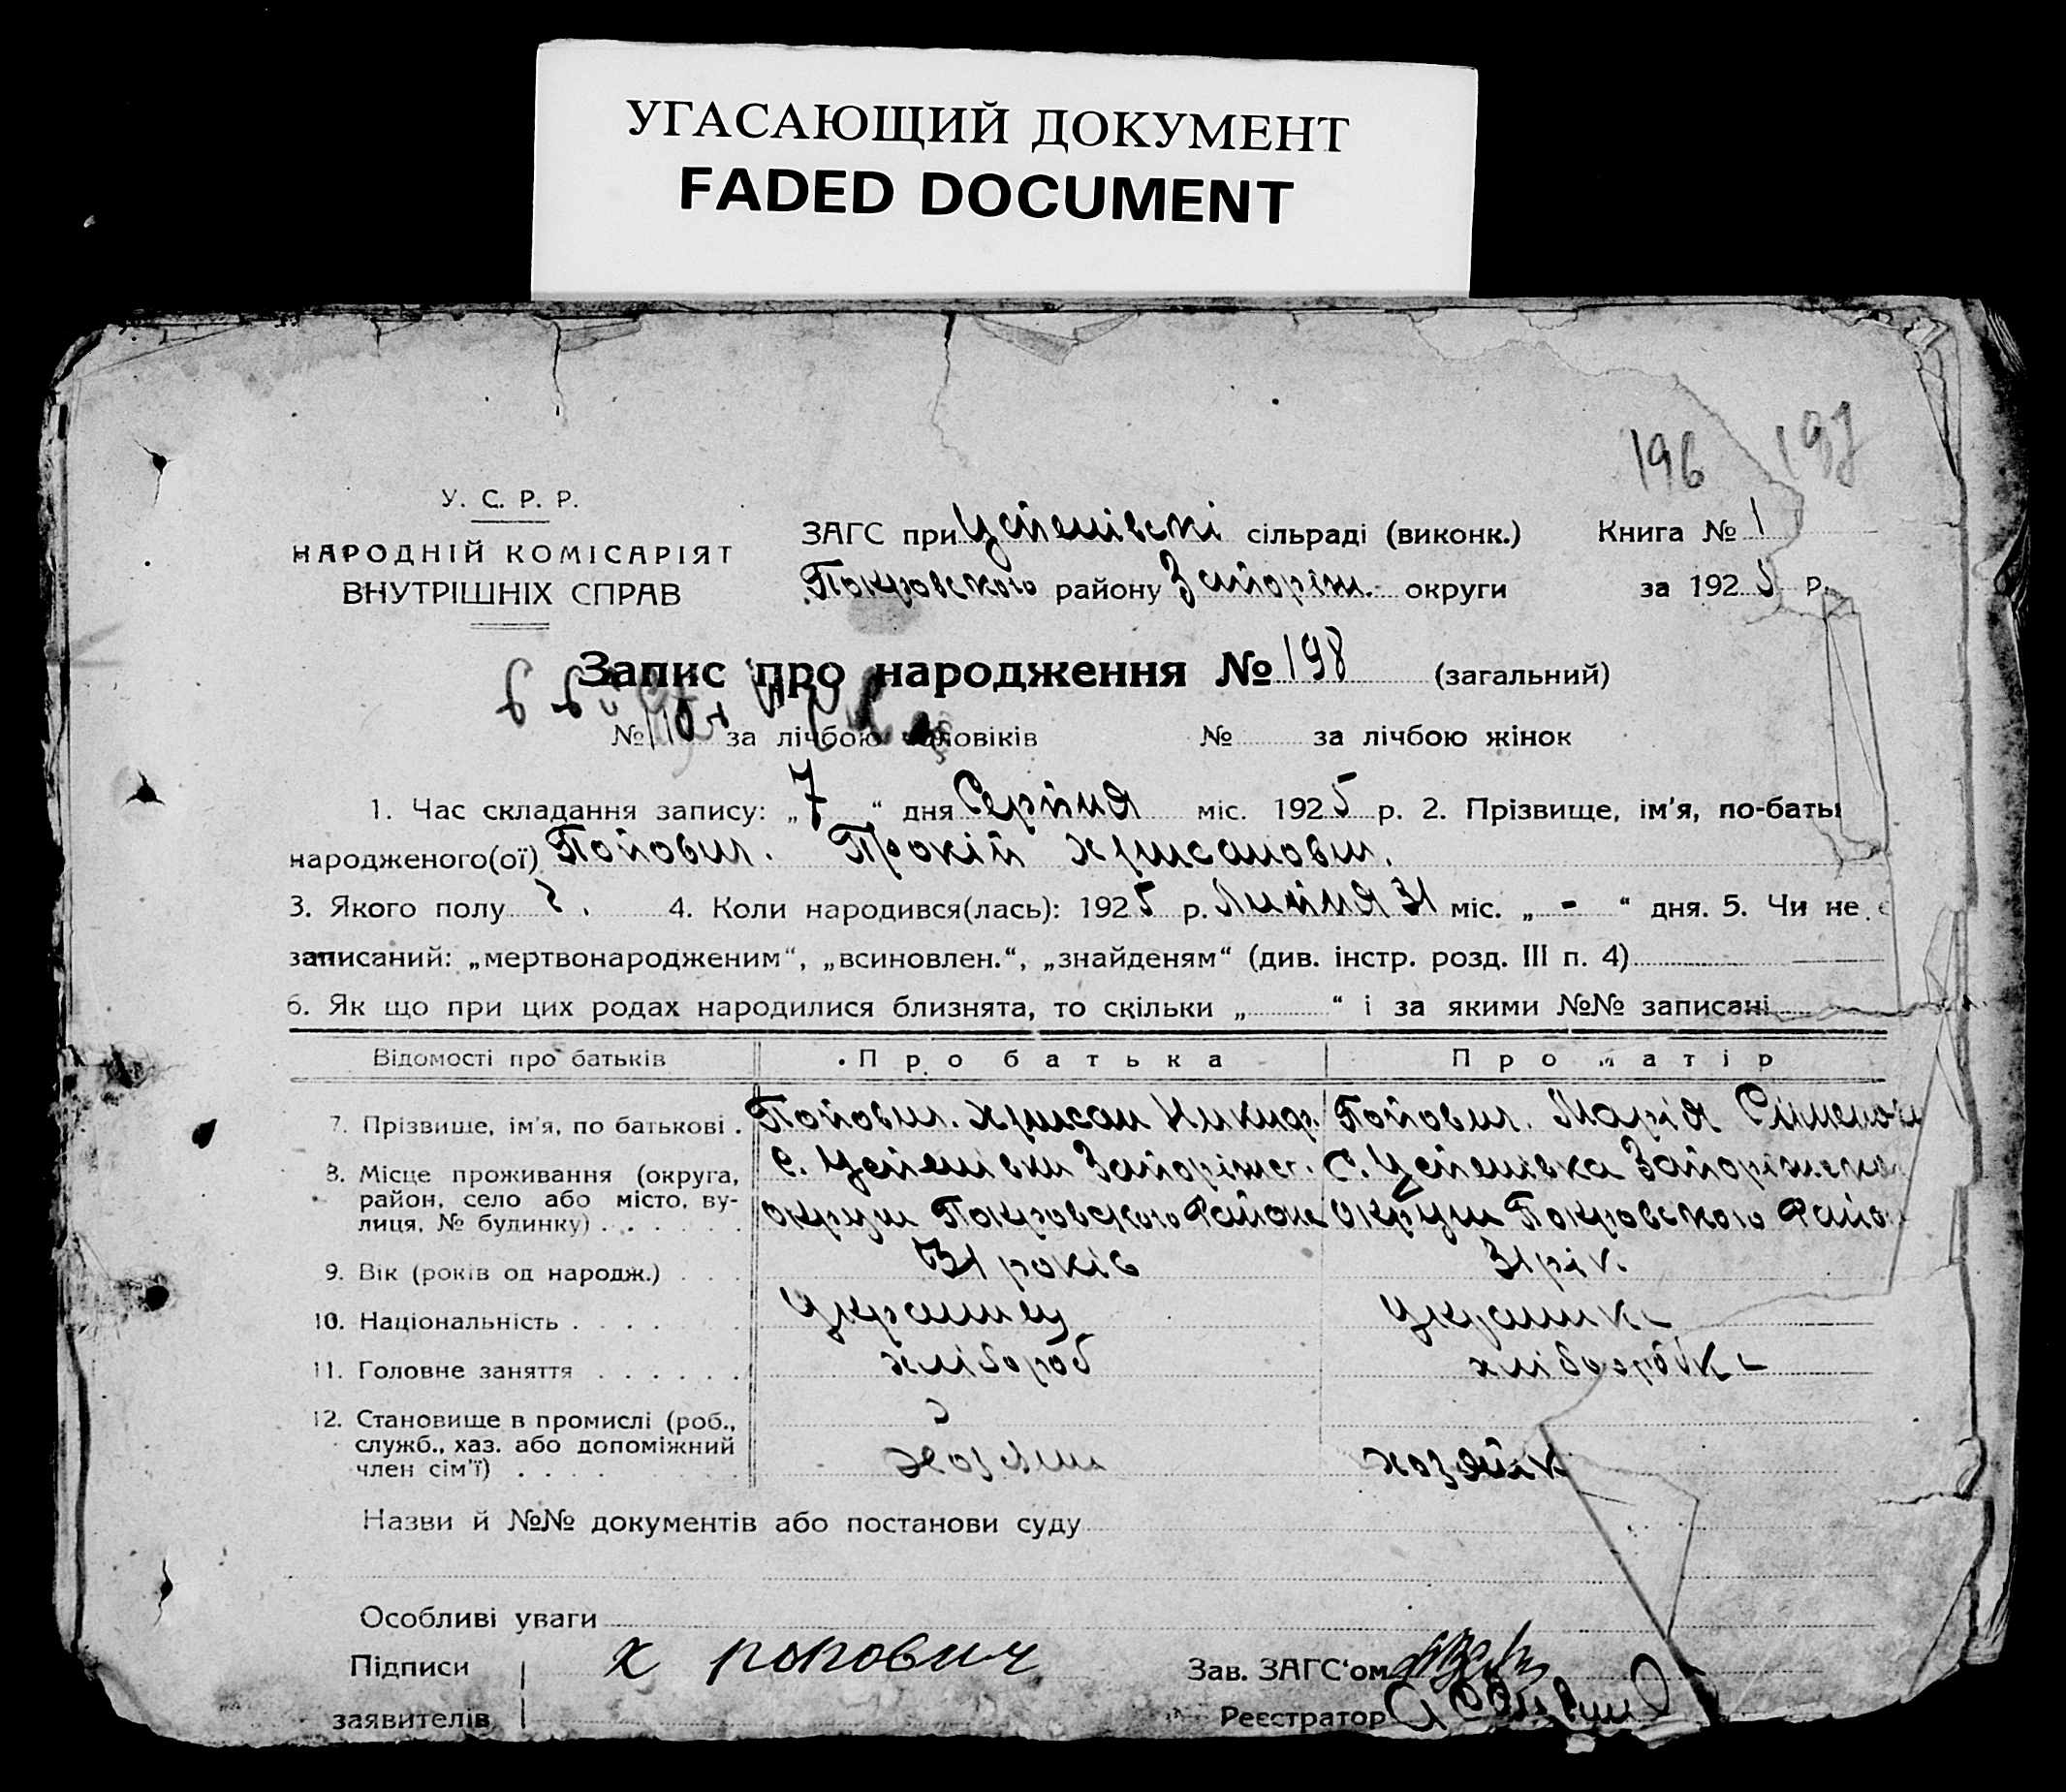 УГАСАЮЩИЙ ДОКУМЕНТ
FADED DOCUMENT
196 197
У. С. Р. Р.
НАРОДНІЙ КОМІСАРІЯТ
ВНУТРІШНІХ СПРАВ
ЗАГС при Успенівскі сільраді (виконк.)
Покровского району Запоріж. округи
Книга № 1
за 1925 р.
Запис про народження № 198 (загальний)
№ 110 за лічбою чоловіків № за лічбою жінок
1. Час складання запису: „7“ дня Серпня міс. 1925 р. 2. Прізвище, ім'я, по-батьк
народженого(ої) Попович. Прокій Хрисанович.
3. Якого полу ч. 4. Коли народився(лась): 1925 р. Липня 31 міс. „ - “ дня. 5. Чи не є
записаний: „мертвонародженим“, „всиновлен.“, „знайденям“ (див. інстр. розд. III п. 4)
6. Як що при цих родах народилися близнята, то скільки „ “ і за якими №№ записані
Відомості про батьків Про батька Про матір
7. Прізвище, ім'я, по батькові . Попович. Хрисан Никиф. Попович. Марія Сіменов
8. Місце проживання (округа, с. Успенівки Запоріжс. С. Успенівка Запоріжско
район, село або місто, ву-
лиця, № будинку) . . . . . . округи Покровского Района округи Покровского Райо
9. Вік (років од народж.) . . . 31 років 31 рік.
10. Національність . . . . . . Украинец Украинка
11. Головне заняття . . . . . . хлібороб хліборобка
12. Становище в промислі (роб.,
служб., хаз. або допоміжний
член сім'ї) . . . . хозяин хозяйк
Назви й №№ документів або постанови суду
Особливі уваги
Підписи х попович Зав. ЗАГС'ом
заявителів Реєстратор